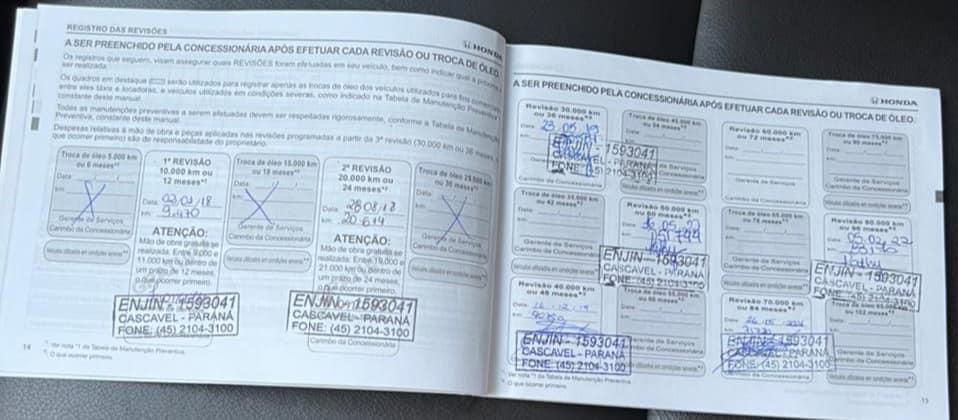 REGISTRO DAS REVISÕES
HONDA
A SER PREENCHIDO PELA CONCESSIONÁRIA APÓS EFETUAR CADA REVISÃO OU TROCA DE ÓLEO
Os registros que seguem, visam assegurar quais REVISÕES foram efetuadas em seu veículo, bem como indicar qual a próxima a
ser realizada.
Os quadros em destaque serão utilizados para registrar apenas as trocas de óleo dos veículos utilizados para fins comerciais,
entre eles táxis e locadoras, e veículos utilizados em condições severas, como indicado na Tabela de Manutenção Preventiva
constante deste manual.
Todas as manutenções preventivas a serem efetuadas devem ser respeitadas rigorosamente, conforme a Tabela de Manutenção
Preventiva, constante deste manual.
Despesas relativas à mão de obra e peças aplicadas nas revisões programadas a partir da 3ª revisão (30.000 km ou 36 meses,
que ocorrer primeiro) são de responsabilidade do proprietário.
Troca de óleo 5.000 km
ou 6 meses*²
Data
km
Gerente de Serviços
Carimbo da Concessionária
Veículos utilizados em condições severas*¹
1ª REVISÃO
10.000 km ou
12 meses*²
Data 02/01/18
km 9.470
ATENÇÃO:
Mão de obra gratuita se
realizada: Entre 9.000 e
11.000 km ou dentro de
um prazo de 12 meses,
o que ocorrer primeiro.
ENJIN - 1593041
CASCAVEL - PARANÁ
FONE: (45) 2104-3100
Troca de óleo 15.000 km
ou 18 meses*²
Data
km
Gerente de Serviços
Carimbo da Concessionária
Veículos utilizados em condições severas*¹
2ª REVISÃO
20.000 km ou
24 meses*²
Data 28/08/18
km 20.614
ATENÇÃO:
Mão de obra gratuita se
realizada: Entre 19.000 e
21.000 km ou dentro de
um prazo de 24 meses,
o que ocorrer primeiro.
ENJIN - 1593041
CASCAVEL - PARANÁ
FONE: (45) 2104-3100
Carimbo da Concessionária
Troca de óleo 25.000 km
ou 30 meses*²
Data
km
Gerente de Serviços
Carimbo da Concessionária
Veículos utilizados em condições severas*¹
14
*¹ Ver nota *1 da Tabela de Manutenção Preventiva.
*² O que ocorrer primeiro.
HONDA
A SER PREENCHIDO PELA CONCESSIONÁRIA APÓS EFETUAR CADA REVISÃO OU TROCA DE ÓLEO.
Revisão 30.000 km
ou 36 meses*²
Data 23.05.19
ENJIN - 1593041
CASCAVEL - PARANÁ
FONE (45) 2104-3100
Carimbo da Concessionária
Troca de óleo 45.000 km
ou 54 meses*²
Data
Veículos utilizados em condições severas*¹
Revisão 60.000 km
ou 72 meses*²
Data
km
Gerente de Serviços
Carimbo da Concessionária
Troca de óleo 75.000 km
ou 90 meses*²
Data
km
Gerente de Serviços
Carimbo da Concessionária
Veículos utilizados em condições severas*¹
Troca de óleo 35.000 km
ou 42 meses*²
Data
km
Gerente de Serviços
Carimbo da Concessionária
Veículos utilizados em condições severas*¹
Revisão 50.000 km
ou 60 meses*²
ENJIN - 1593041
CASCAVEL - PARANÁ
FONE: (45) 2104-3100
Troca de óleo 65.000 km
ou 78 meses*²
Data
km
Gerente de Serviços
Carimbo da Concessionária
Veículos utilizados em condições severas*¹
Revisão 80.000 km
ou 96 meses*²
Data
ENJIN - 1593041
CASCAVEL - PARANÁ
FONE: (45) 2104-3100
Revisão 40.000 km
ou 48 meses*²
Data 26.12.19
km
ENJIN - 1593041
CASCAVEL - PARANÁ
FONE: (45) 2104-3100
Gerente de Serviços
Carimbo da Concessionária
Veículos utilizados em condições severas*¹
Revisão 70.000 km
ou 84 meses*²
Data
km
ENJIN - 1593041
CASCAVEL - PARANÁ
FONE: (45) 2104-3100
ou 102 meses*²
Data
km
Gerente de Serviços
Carimbo da Concessionária
Veículos utilizados em condições severas*¹
*¹ Ver nota *1 da Tabela de Manutenção Preventiva.
*² O que ocorrer primeiro.
15